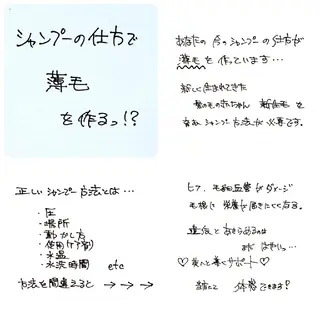 シャンプーの仕方で
薄毛
を作るっ!?
あなたの今のシャンプーの仕方が
薄毛を作っています…
新しく生まれてきた
髪の毛の赤ちゃん 新生毛を
シャンプー方法が必要です。
正しいシャンプー方法とは…
・圧
・場所
・動かし方
・使用(ケア剤)
・水温
・水洗時間 etc
方法を間違えると → → →
毛細血管がダメージ
毛根に栄養が届きにくくなる。
遺伝とあきらめるのは
まだはやいっ…
♡ サポート♡
体感できます?